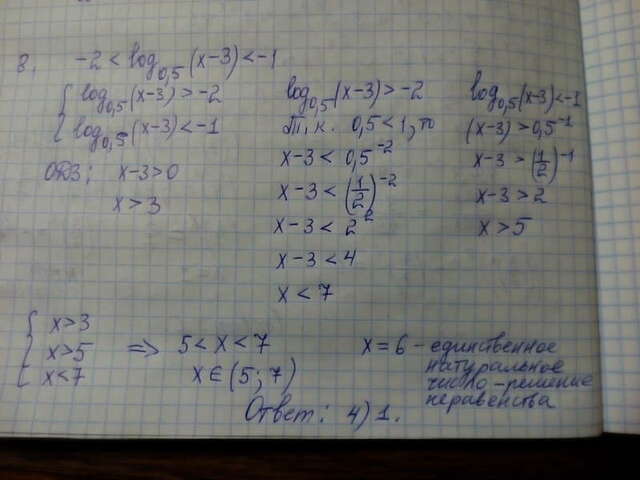 8. -2 < log₀,₅(x-3) < -1
{ log₀,₅(x-3) > -2
{ log₀,₅(x-3) < -1
ОДЗ: x-3>0
x > 3
log₀,₅(x-3) > -2
Т.к. 0,5 < 1, то
x-3 < 0,5⁻²
x-3 < (1/2)⁻²
x-3 < 2²
x-3 < 4
x < 7
log₀,₅(x-3) < -1
(x-3) > 0,5⁻¹
x-3 > (1/2)⁻¹
x-3 > 2
x > 5
{ x>3
{ x>5
{ x<7
=> 5 < x < 7
x ∈ (5; 7)
x = 6 - единственное
натуральное
число - решение
неравенства
Ответ: 4) 1.